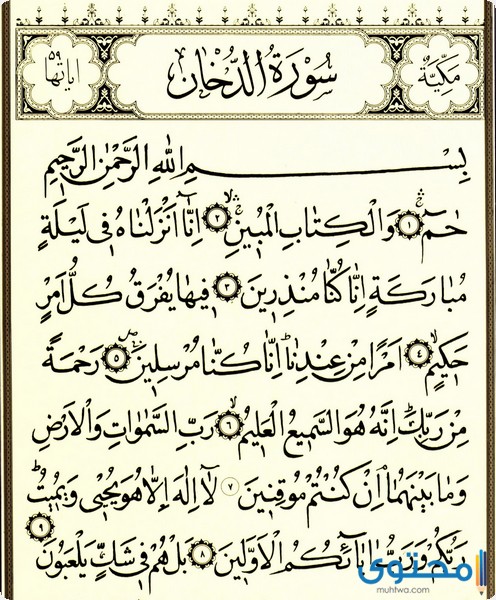 مكية سورة الدخان اياتها ٥٩
بسم الله الرحمن الرحيم
حم ١ والكتاب المبين ٢ انا انزلناه في ليلة
مباركة انا كنا منذرين ٣ فيها يفرق كل امر
حكيم ٤ امرا من عندنا انا كنا مرسلين ٥ رحمة
من ربك انه هو السميع العليم ٦ رب السموات والارض
وما بينهما ان كنتم موقنين ٧ لا اله الا هو يحيى ويميت
ربكم ورب ابائكم الاولين ٨ بل هم في شك يلعبون ٩
محتوى
muhtwa.com